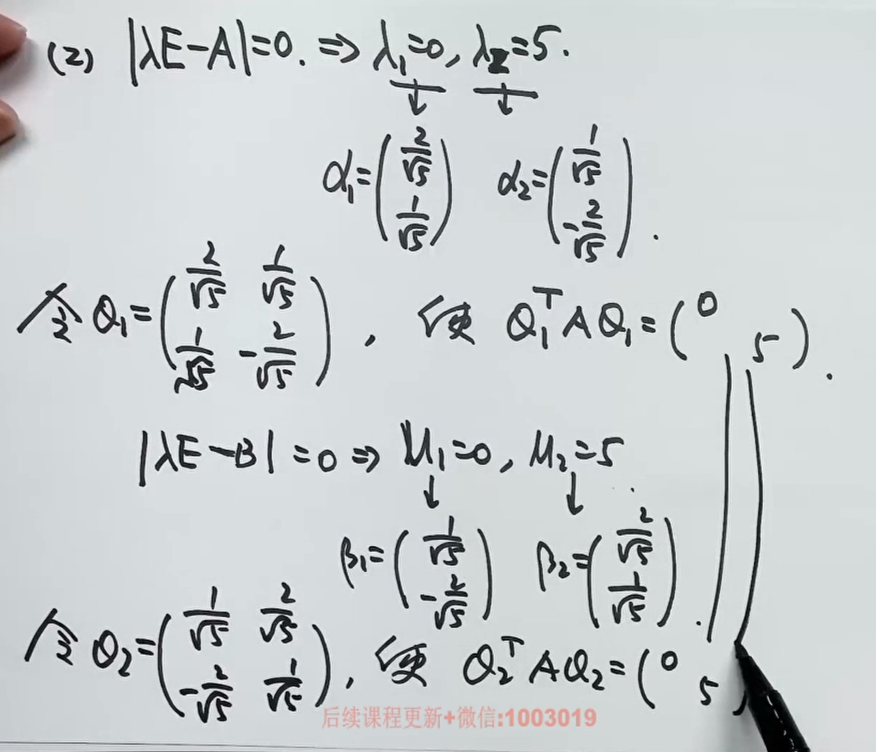 (2) |λE-A|=0. ⇒ λ₁=0, λ₂=5.
α₁=(2/√5 1/√5) α₂=(1/√5 -2/√5).
令 Q₁=(2/√5 1/√5 1/√5 -2/√5), 使 Q₁ᵀAQ₁=(0 5).
|λE-B|=0 ⇒ μ₁=0, μ₂=5
β₁=(1/√5 -2/√5) β₂=(2/√5 1/√5).
令 Q₂=(1/√5 2/√5 -2/√5 1/√5), 使 Q₂ᵀAQ₂=(0 5)
后续课程更新+微信:1003019